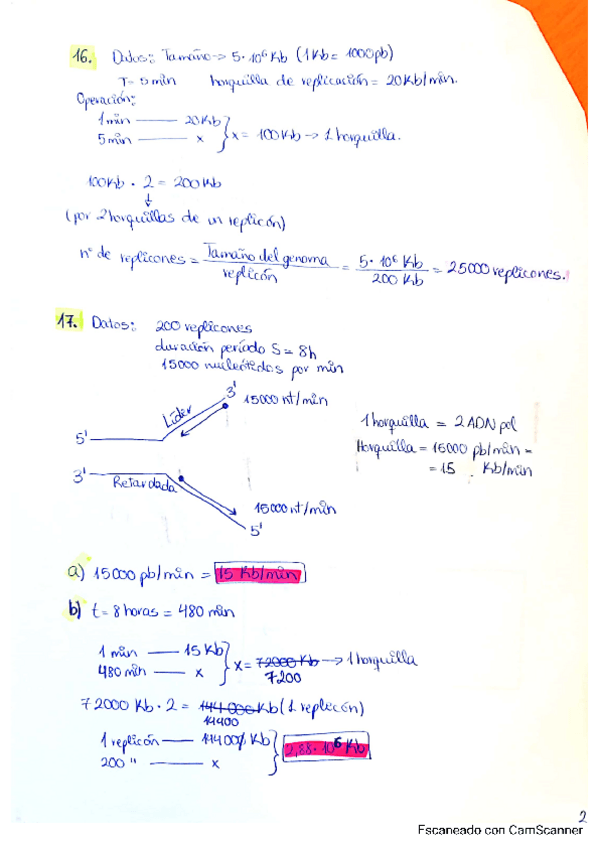 16. Datos: Tamaño → 5·10⁶ Kb (1 Kb = 1000 pb)
T = 5 min horquilla de replicación = 20 Kb/min.
Operación:
1 min —— 20 Kb
5 min —— x } x = 100 Kb → 1 horquilla.
100 Kb · 2 = 200 Kb
↓
(por 2 horquillas de un replicón)
nº de replicones = Tamaño del genoma / replicón = 5·10⁶ Kb / 200 Kb = 25000 replicones.
17. Datos: 200 replicones
duración período S = 8h
15000 nucleótidos por min
3'
Líder
15000 nt/min
5'
3'
Retardada
15000 nt/min
5'
1 horquilla = 2 ADN pol
Horquilla = 15000 pb/min =
= 15 Kb/min
a) 15000 pb/min = 15 Kb/min
b) t = 8 horas = 480 min
1 min —— 15 Kb
480 min —— x } x = 72000 Kb → 1 horquilla
7200
72000 Kb · 2 = 144000 Kb (1 replicón)
14400
1 replicón —— 14400 Kb
200 " —— x } 2,88·10⁶ Kb
2
Escaneado con CamScanner